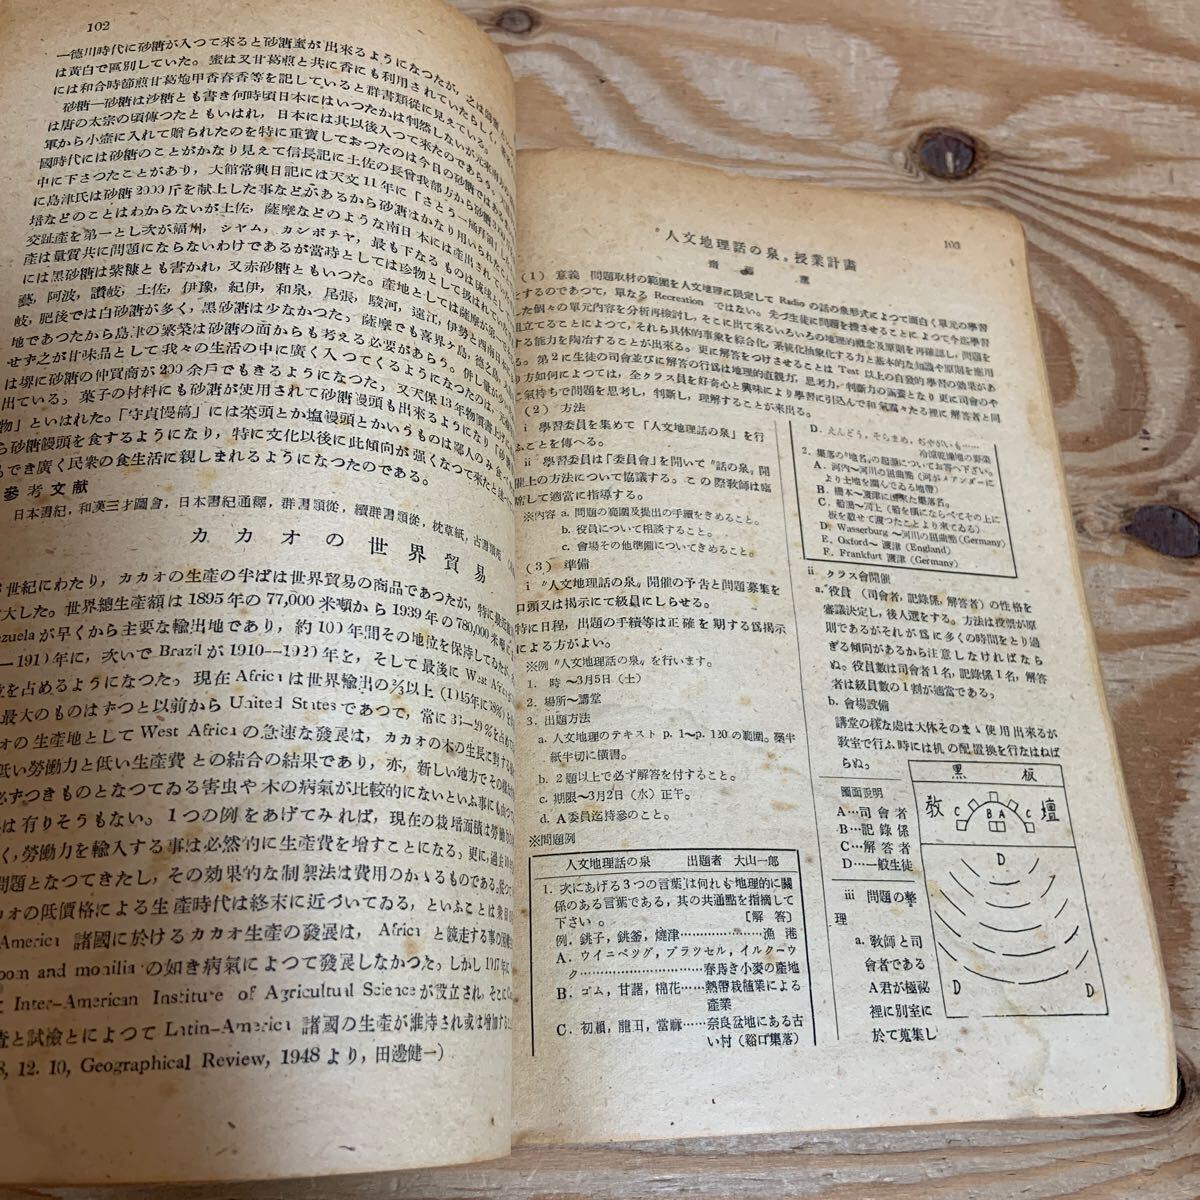 102
一德川時代に砂糖が入つて來ると砂糖蜜が出來るようになつたが,
は黃白で區別していた。蜜は又甘葛煎と共に香にも利用されていたらしく,
には和合時節煎甘葛炮甲香春香等を記していると群書類從に見えている。
砂糖―砂糖は沙糖とも書き何時頃日本にはいつたかは判然しないが
は唐の太宗の頃傳つたともいはれ, 日本には其以後入つて來たのであらう。
軍から小壺に入れて贈られたのを特に重寶しておつたのは今日の砂糖では
國時代には砂糖のことがかなり見えて信長記に土佐の長曾我部方から砂糖
中に下さつたことがあり, 大館常興日記には天文11年に「さとう一桶拜領」
に島津氏は砂糖2000斤を献上した事などがあるから砂糖はかなり用いられた
培などのことはわからないが土佐, 薩摩などのような南日本には產出されて
交趾產を第一とし次が福州, シヤム, カンボチヤ, 最も下なるものは琉球
產は量質共に問題にならないわけであるが當時としては珍物として扱はれていた
には黑砂糖は紫糖とも書かれ, 又赤砂糖ともいつた。產地としては薩摩が第一
藝, 阿波, 讚岐, 土佐, 伊豫, 紀伊, 和泉, 尾張, 駿河, 遠江, 伊勢と西南日本
岐, 肥後では白砂糖が多く, 黑砂糖は少なかつた。薩摩でも喜界ヶ島, 德之島,
地であつたから島津の繁榮は砂糖の面からも考える必要があらう。併し
せず之が甘味品として我々の生活の中に廣く入つてくるようになつたのは,
は堺に砂糖の仲買商が200余戶でもきるようになつた。又天保13年物價書上に
出ている。菓子の材料にも砂糖が使用されて砂糖漫頭も出來るようになり,
物」といはれた。「守貞慢稿」には菜頭とか塩饅頭とかいうものは鄙人のみ食
ら砂糖饅頭を食するようになり, 特に文化以後に此傾向が强くなつて來た
もでき廣く民衆の食生活に親しまれるようになつたのである。
參考文献
日本書紀, 和漢三才圖會, 日本書紀通釋, 群書類從, 續群書類從, 枕草紙, 古事類苑
カカオの世界貿易
世紀にわたり, カカオの生產の半ばは世界貿易の商品であつたが, 特に最近
大した。世界總生產額は1895年の77,000米噸から1939年の780,000米噸に
ezuelaが早くから主要な輸出地であり, 約10)年間その地位を保持してゐたが,
—191)年に, 次いでBrazilが1910--192)年を, そして最後にWest Africa
を占めるようになつた。現在Africaは世界輸出の2/3以上
最大のものはずつと以前からUnited Statesであつて, 常に33-20%を占めて
オの生產地としてWest Africaの急速な發展は, カカオの木の生長に對する
低い勞働力と低い生產費との結合の結果であり, 亦, 新しい地方でその
必ずつきものとなつてゐる害虫や木の病氣が比較的にないといふ事にも
は有りそうもない。1つの例をあげてみれば, 現在の栽培面積は勞働力
く, 勞働力を輸入する事は必然的に生產費を增すことになる。更に, 過去
問題となつてきたし, その効果的な制禦法は費用のかゝるものである。
カオの低價格による生產時代は終末に近づいてゐる, といふことは
America 諸國に於けるカカオ生產の發展は, Africaと競走する事の
oom and monilia の如き病氣によつて發展しなかつた。しかし1947年に
Inter-American Institute of Agricultural Scienceが設立され, そこに
査と試驗とによつてLatin-America 諸國の生產が維持され或は增加する
8, 12. 10, Geographical Review, 1948より, 田邊健一)
103
〝人文地理話の泉〟授業計畫
(1) 意義 問題取材の範圍を人文地理に限定してRadioの話の泉形式によつて面白く單元の學習
をするのであつて, 單なるRecreationではない。先づ生徒に問題を搜させることによつて今迄學習
した個々の單元內容を分析再檢討し, そこに出て來るいろいろの地理的概念及原則を再確認し, 問題を
組立てることによつて, それら具体的事象を綜合化, 系統化抽象化する力と基本的な知識や原則を應用
する能力を陶冶することが出來る。更に解答をつけさせることはTest以上の自發的學習の効果があ
る。第2に生徒の司會並びに解答の行爲は地理的直觀力, 思考力, 判斷力の涵養となり更に司會のや
り方如何によつては, 全クラス員を好奇心と興味により學習に引込んで和氣靄々たる裡に解答者と同
じ氣持ちで問題を思考し, 判斷し, 理解することが出來る。
(2) 方法
i 學習委員を集めて「人文地理話の泉」を行
ふことを傳へる。
ii 學習委員は「委員會」を開いて〝話の泉〟開
催上の方法について協議する。この際敎師は臨
席して適當に指導する。
※內容 a. 問題の範圍及提出の手續をきめること。
b. 役員について相談すること。
c. 會場その他準備についてきめること。
(3) 準備
i 〝人文地理話の泉〟開催の予告と問題募集を
口頭又は揭示にて級員にしらせる。
特に日程, 出題の手續等は正確を期する爲揭示
による方がよい。
※例〝人文地理話の泉〟を行います。
1. 時 〜3月5日(土)
2. 場所〜講堂
3. 出題方法
a. 人文地理のテキスト p. 1〜p. 130の範圍。藁半
紙半切に橫書。
b. 2題以上で必ず解答を付すること。
c. 期限〜3月2日(水)正午。
d. A委員迄持參のこと。
※問題例
人文地理話の泉 出題者 大山一郎
1. 次にあげる3つの言葉は何れも地理的に關
係のある言葉である, 其の共通點を指摘して
下さい。 〔解 答〕
例. 銚子, 釧釜, 燒津……………漁 港
A. ウイニペツグ, ブラツセル, イルクーツ
ク……………………春蒔き小麥の產地
B. ゴム, 甘藷, 棉花……熱帶栽植業による
產業
C. 初瀨, 龍田, 當麻……奈良盆地にある古
い付(谿口集落)
D. えんどう, そらまめ, おやがいも……
冷涼乾燥地の野菜
2. 集落の〝地名〟の起源についてお答へ下さい。
A. 河內〜河川の屈曲點(河がメアンダーに
より土地を圍んでゐる地帶)
B. 橋本〜渡津に出來た集落名。
C. 船渡〜河上(船を橫にならべてその上に
板を載せて渡つたことより來てゐる)
D. Wasserburg〜河川の屈曲點(Germany)
E. Oxford〜渡津(England)
F. Frankfurt 渡津(Germany)
ii クラス會開催
a. 役員(司會者, 記錄係, 解答者)の性格を
審議決定し, 後人選をする。方法は投票が原
則であるがそれが爲に多くの時間をとり過
ぎる傾向があるから注意しなければなら
ぬ。役員數は司會者1名, 記錄係1名, 解答
者は級員數の1割が適當である。
b. 會場設備
講堂の樣な處は大体そのまゝ使用出來るが
敎室で行ふ時には机の配置換を行なはねば
らぬ。
圖面說明
A…司會者
B…記錄係
C…解答者
D…一般生徒
黑 板
敎 壇
C C B A C
D
D D
iii 問題の整
理
a. 敎師と司
會者である
A君が極祕
裡に別室に
於て蒐集し